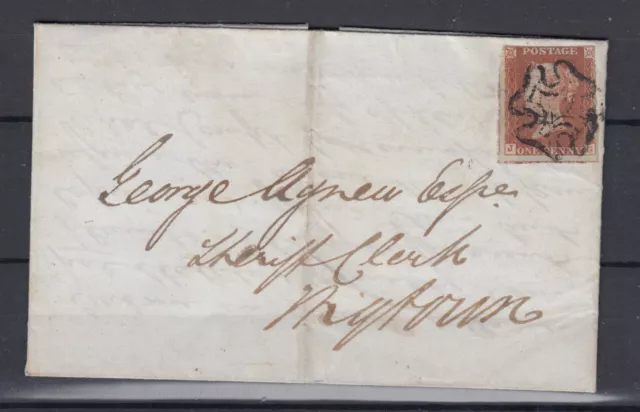 POSTAGE
ONE PENNY
J
George Agnew Esqre
Sheriff Clerk
Wigtown